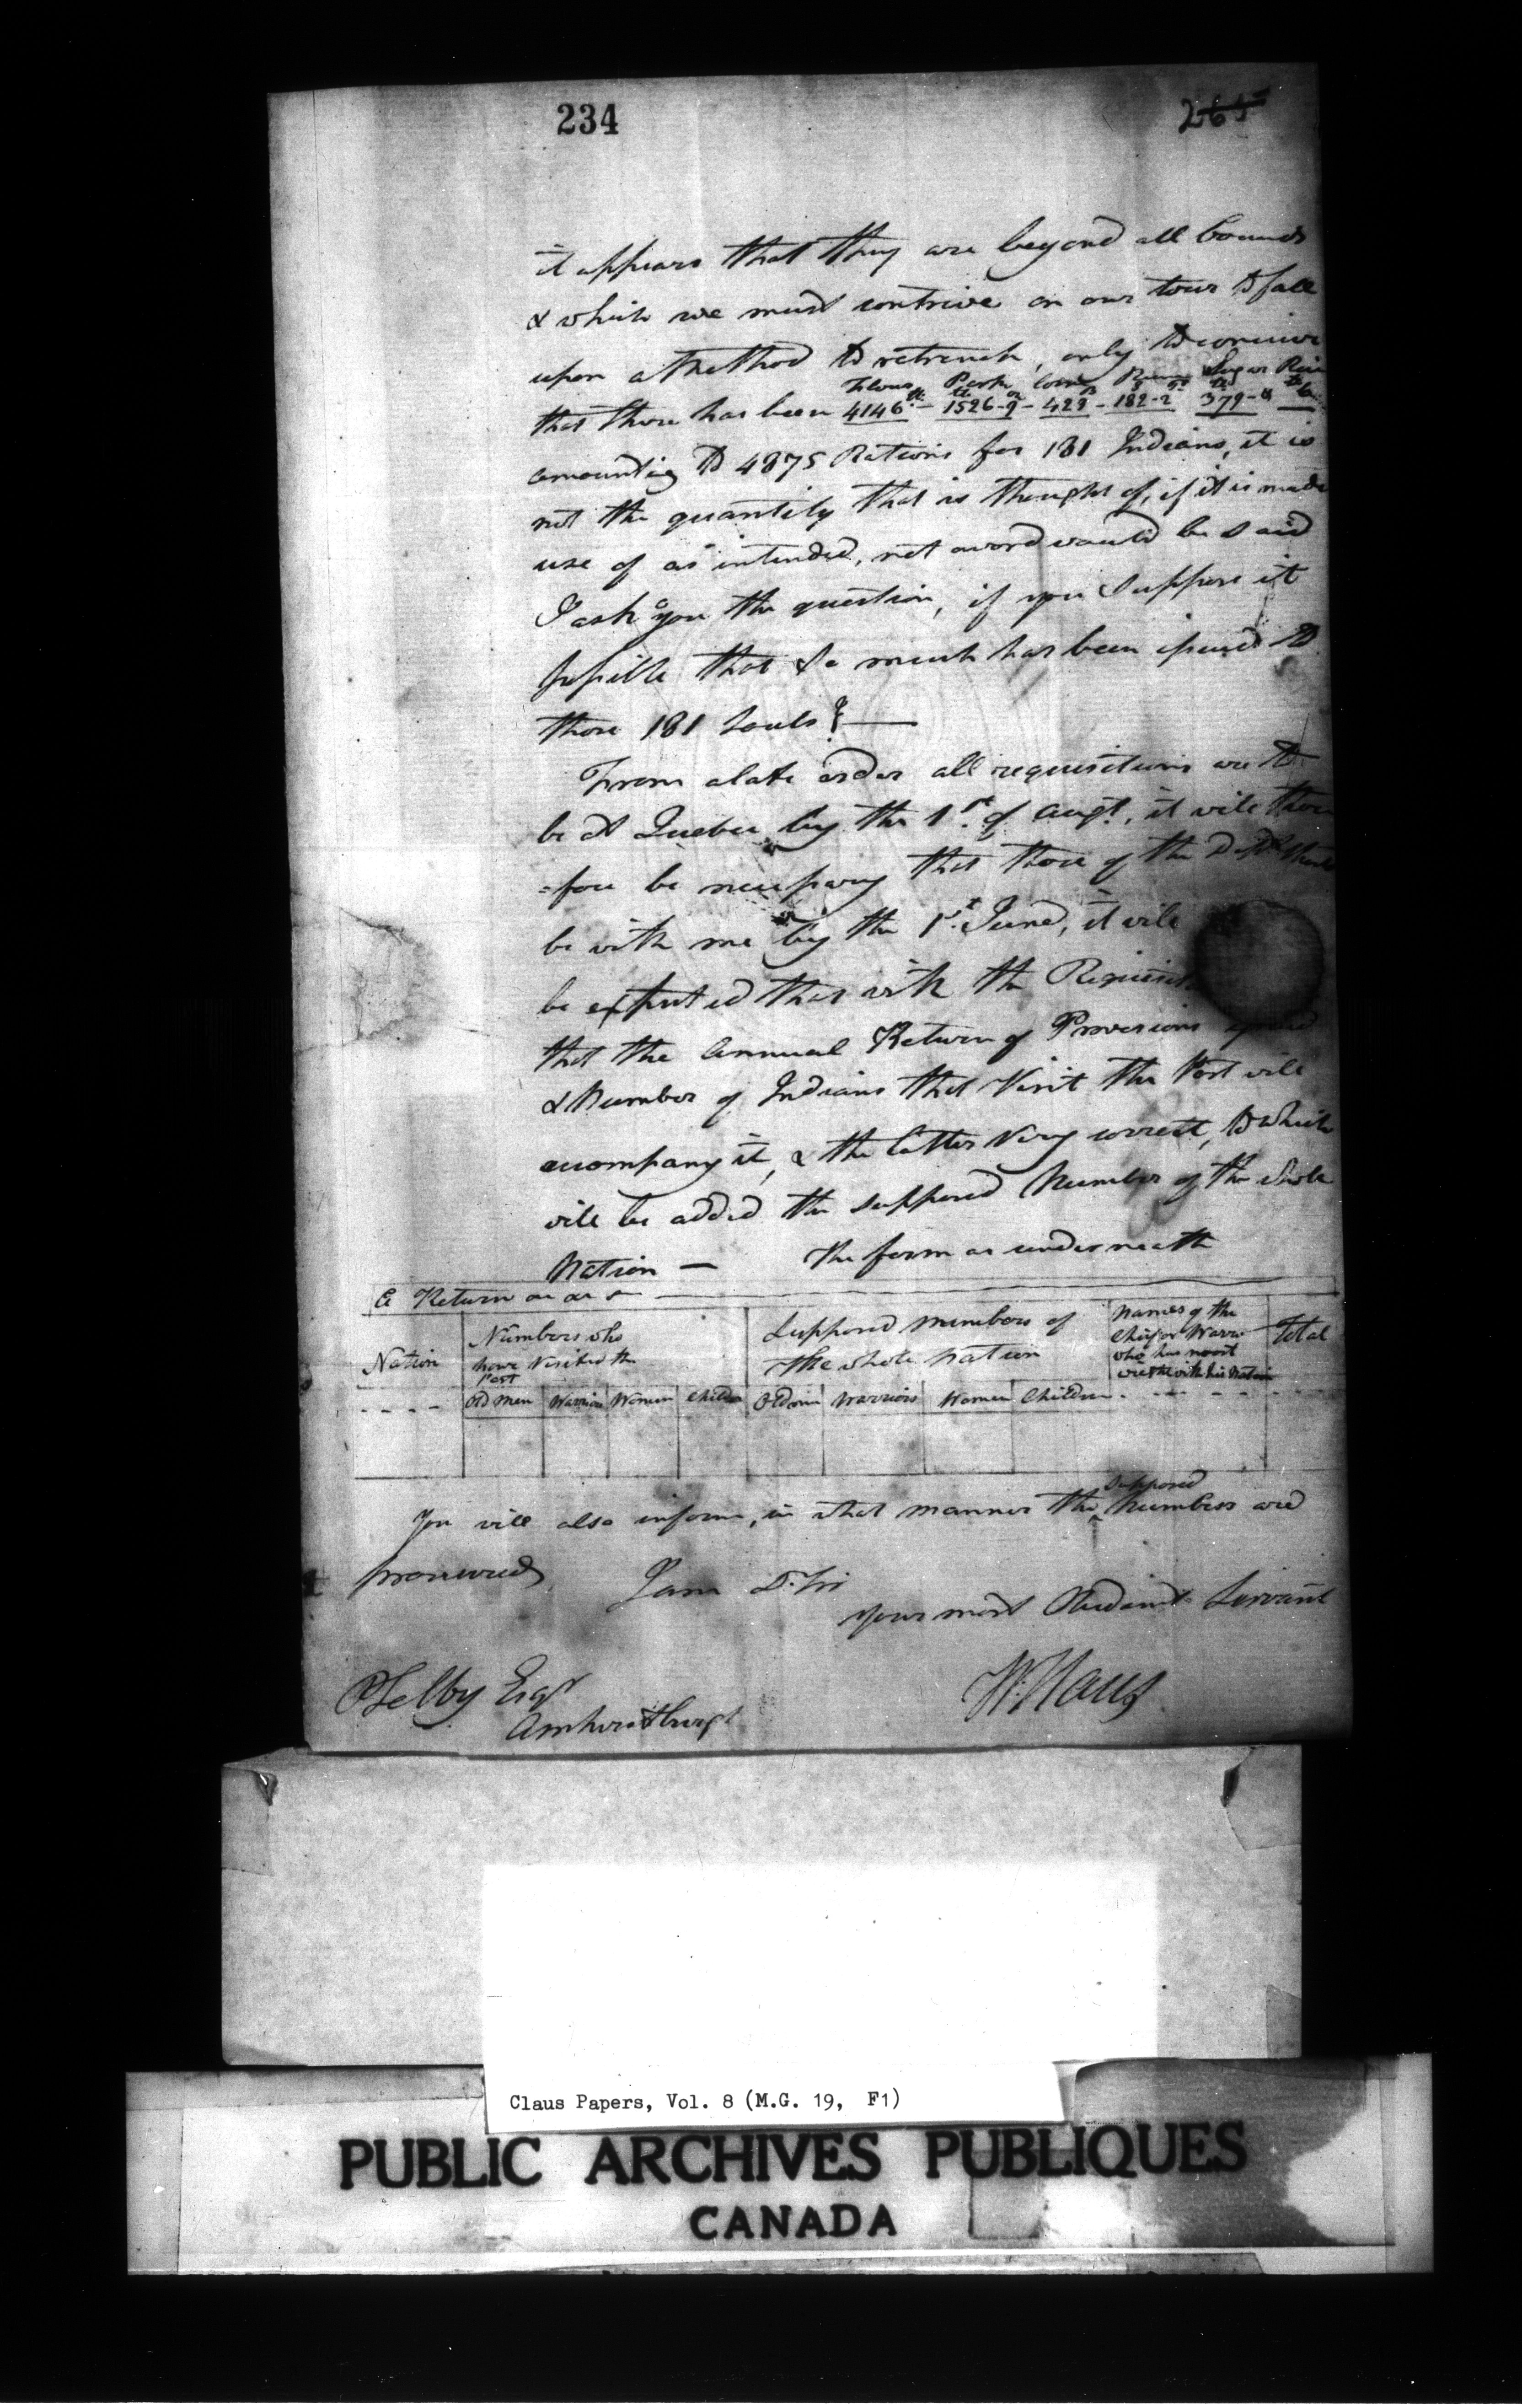 234
265
it appears that they are beyond all bounds
& which we must contrive on our tour to fall
upon a Method to retrench, only to conceive
Flour Pork Corn Rum Sugar Rice
that there has been 4146 - 1526-9 - 423 - 182-2 379-8
amounting to 4875 Rations for 181 Indians, it is
not the quantity that is thought of, if it is made
use of as intended, not a word would be said
I ask you the question, if you suppose it
possible that so much has been issued to
those 181 Souls? —
From a late order all requisitions are to
be at Quebec by the 1st. of Augt., it will there
=fore be necessary that those of the Dept.
be with me by the 1st. June, it will
be expected that with the
that the Annual Return of Provisions issued
& Number of Indians that Visit the Post will
accompany it, & the latter Very correct, to which
will be added the supposed Number of the whole
Nation — The form as underneath
A Return
Nation
Numbers who
have Visited the
Post
Supposed numbers of
the whole nation
Names of the
Chief or Warrr
who has most
with his Nation
Total
Old Men Warriors Women Children Old men Warriors Women Children
supposed
You will also inform, in what manner the ^ Numbers are
procured
I am D. Sir
Your most Obedient Servant
W: Claus
P Selby Esqr
Amherstburgh
Claus Papers, Vol. 8 (M.G. 19, F1)
PUBLIC ARCHIVES PUBLIQUES
CANADA